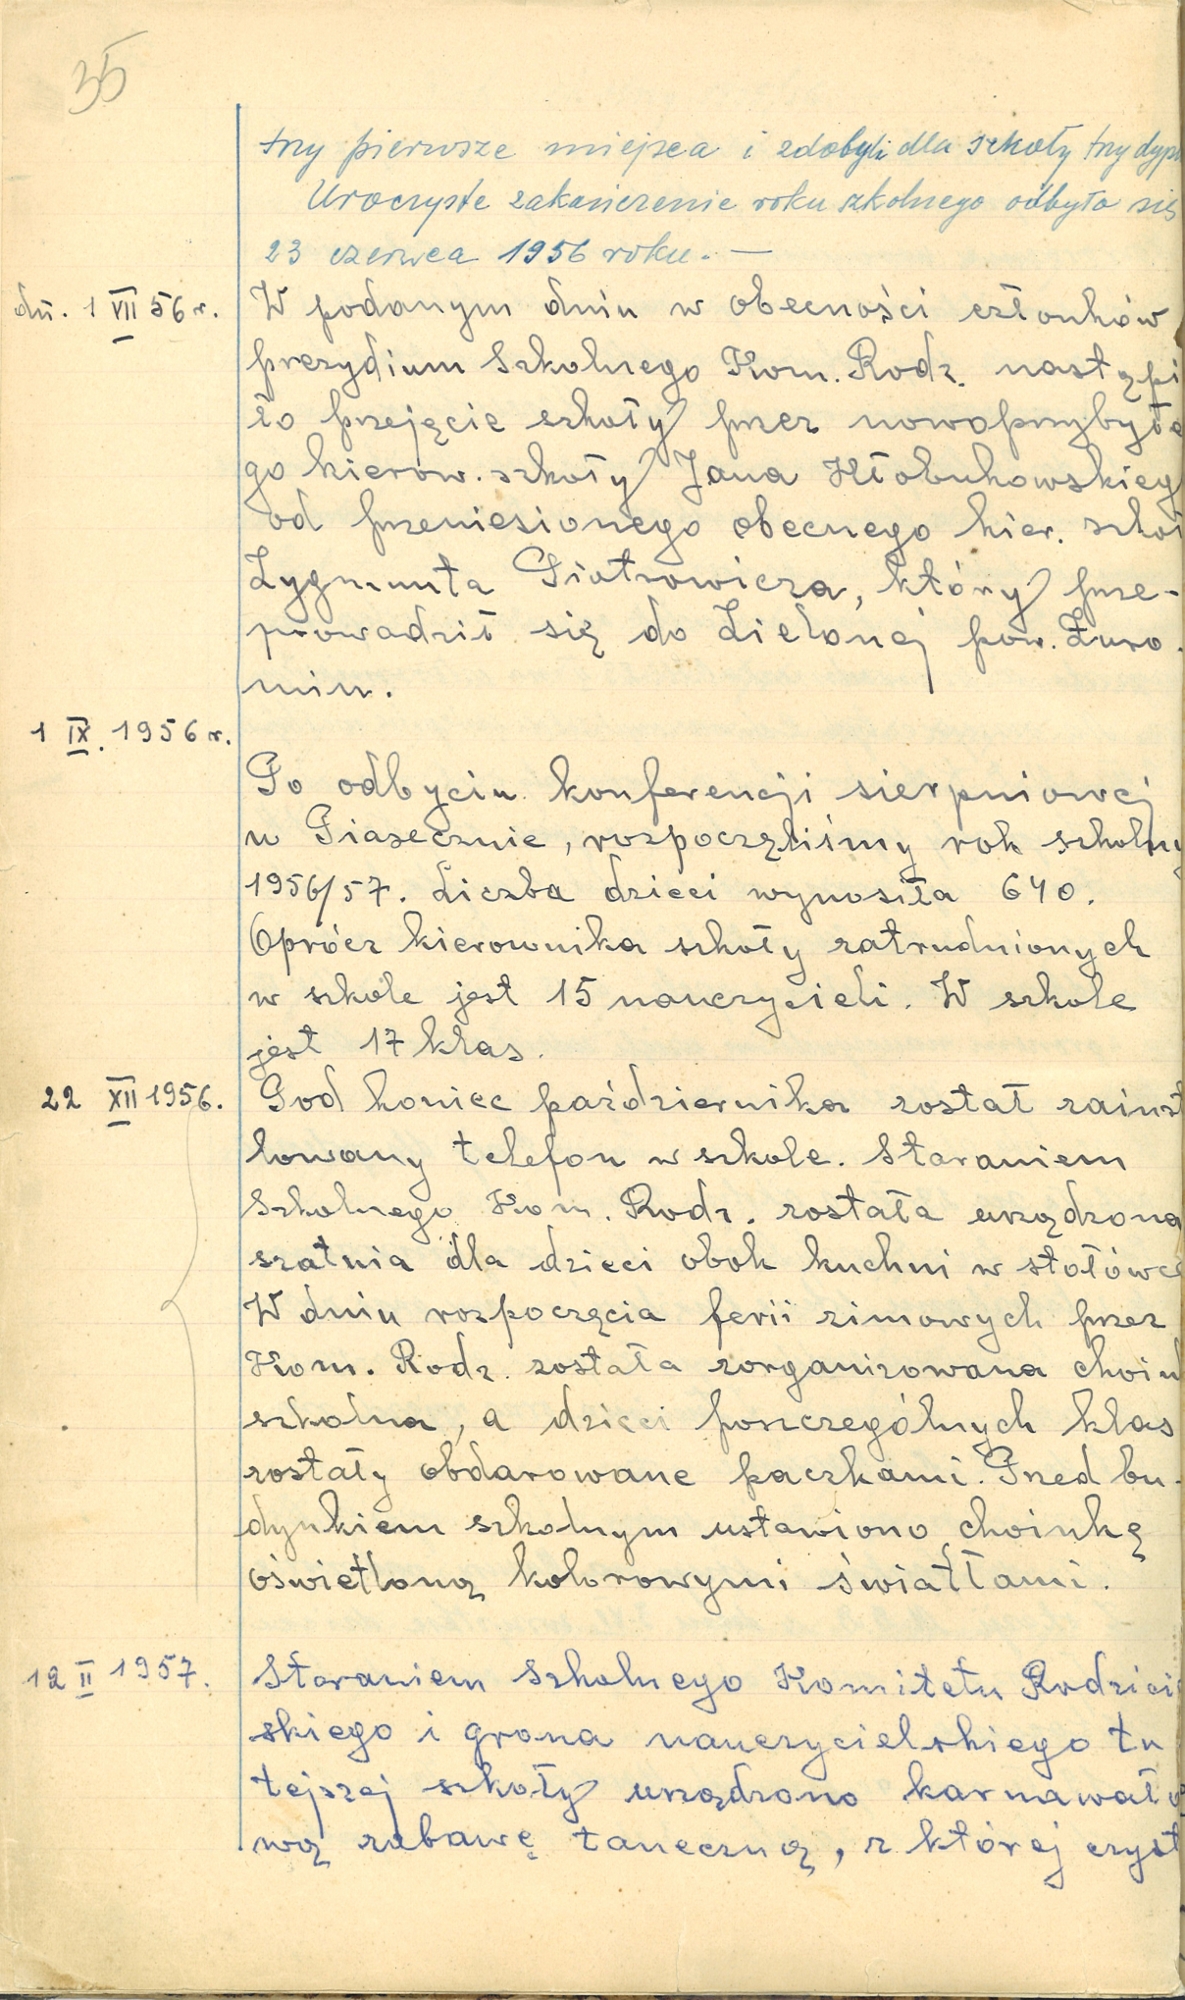 35
trzy pierwsze miejsca i zdobyli dla szkoły trzy dypl
Uroczyste zakończenie roku szkolnego odbyło się
23 czerwca 1956 roku. —
dn. 1 VII 56 r. W podanym dniu w obecności członków
prezydium Szkolnego Kom. Rodz. nastąpi
ło przejęcie szkoły przez nowoprzybyłe
go kierow. szkoły Jana Kłobukowskieg
od przeniesionego obecnego kier. szkoł
Zygmunta Piotrowicza, który prze-
prowadził się do Zielonej pow. Żuro-
min.
1 IX. 1956 r.
Po odbyciu konferencji sierpniowej
w Piasecznie, rozpoczęliśmy rok szkolny
1956/57. Liczba dzieci wynosiła 640.
Oprócz kierownika szkoły zatrudnionych
w szkole jest 15 nauczycieli. W szkole
jest 17 klas.
22 XII 1956. Pod koniec października został zainst
lowany telefon w szkole. Staraniem
Szkolnego Kom. Rodz. została urządzona
szatnia dla dzieci obok kuchni w stołówce
W dniu rozpoczęcia ferii zimowych przez
Kom. Rodz. została zorganizowana choin
szkolna, a dzieci poszczególnych klas
zostały obdarowane paczkami. Przed bu-
dynkiem szkolnym ustawiono choinkę
oświetloną kolorowymi światłami.
12 II 1957. Staraniem Szkolnego Komitetu Rodzici
skiego i grona nauczycielskiego tu
tejszej szkoły urządzono karnawało
wą zabawę taneczną, z której czyst